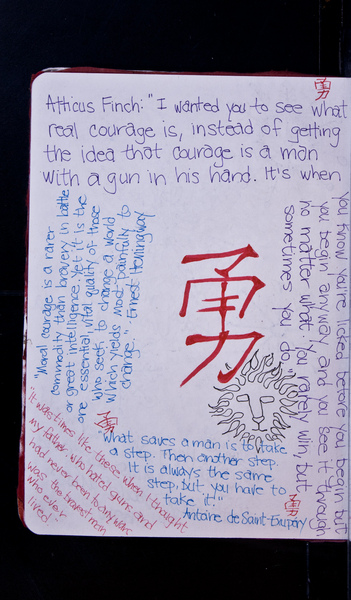 Atticus Finch: "I wanted you to see what
real courage is, instead of getting
the idea that courage is a man
with a gun in his hand. It's when
you know you're licked before you begin but
you begin anyway and you see it through
no matter what. You rarely win, but
sometimes you do."
勇
"Moral courage is a rarer
commodity than bravery in battle
or great intelligence. Yet it is the
one essential, vital quality of those
who seek to change a world
which yields most painfully to
change." - Ernest Hemingway
"What saves a man is to take
a step. Then another step.
It is always the same
step, but you have to
take it."
Antoine de Saint-Exupéry
"It was times like these when I thought
my father who hated guns and
had never been to any wars
was the bravest man
who ever
lived."
勇
勇
勇